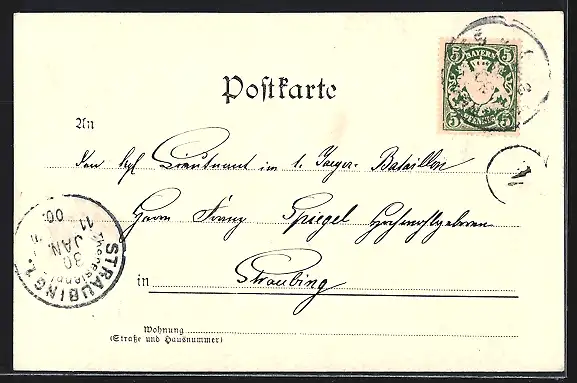 5 BAYERN 5
5 PFENNIG 5
Postkarte
An
den kgl. Lieutenant im 1. Jaeger-Bataillon
Herrn Franz Spiegel Hochwohlgeboren
in Straubing
Wohnung
(Straße und Hausnummer)
STRAUBING 2.
30
JAN.
11
00